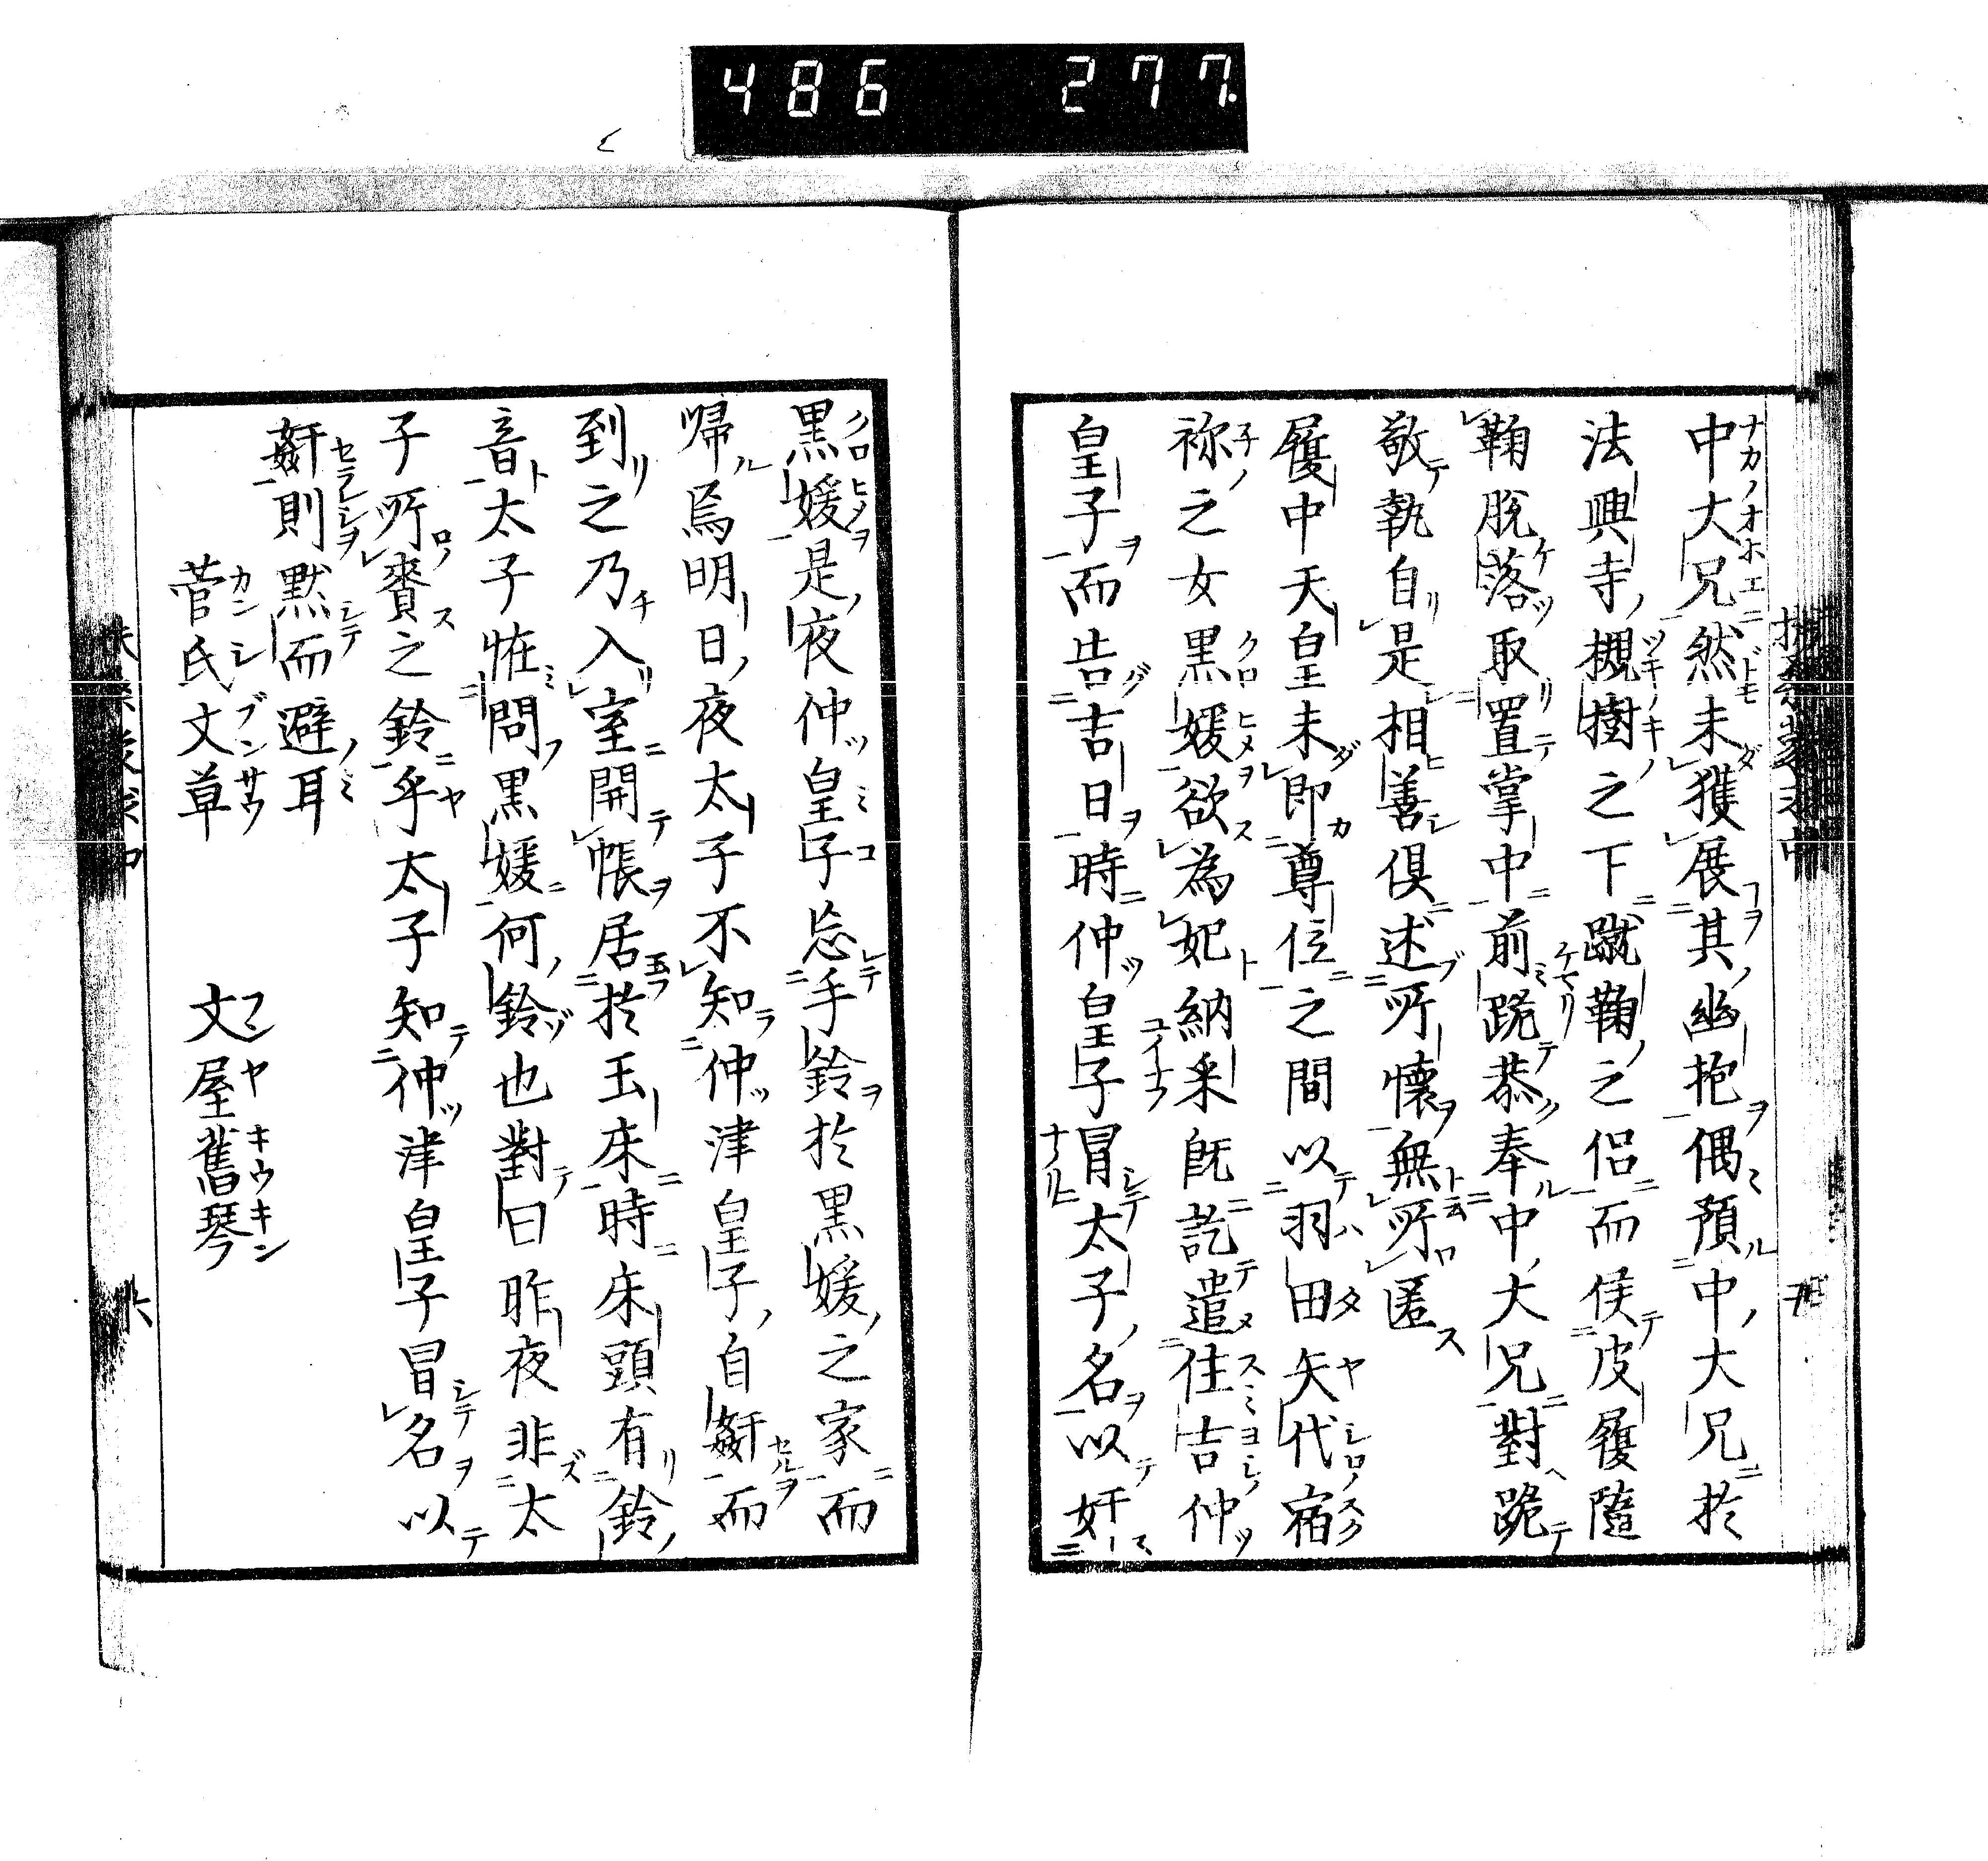 486 277.
中大兄然未獲展其幽抱偶預中大兄於
法興寺槻樹之下蹴鞠之侶而候皮履隨
鞠脫落取置掌中前跪恭奉中大兄對跪
敬執自是相善俱述所懷無所匿
履中天皇未即尊位之間以羽田矢代宿
祢之女黒媛欲為妃納采既訖遣住吉仲
皇子而告吉日時仲皇子冒太子名以奸
黒媛是夜仲皇子忘手鈴於黒媛之家而
歸焉明日夜太子不知仲津皇子自姧而
到之乃入室開帳居於玉床時床頭有鈴
音太子恠問黒媛何鈴也對曰昨夜非太
子所賷之鈴乎太子知仲津皇子冒名以
姧則黙而避耳
菅氏文草 文屋舊琴